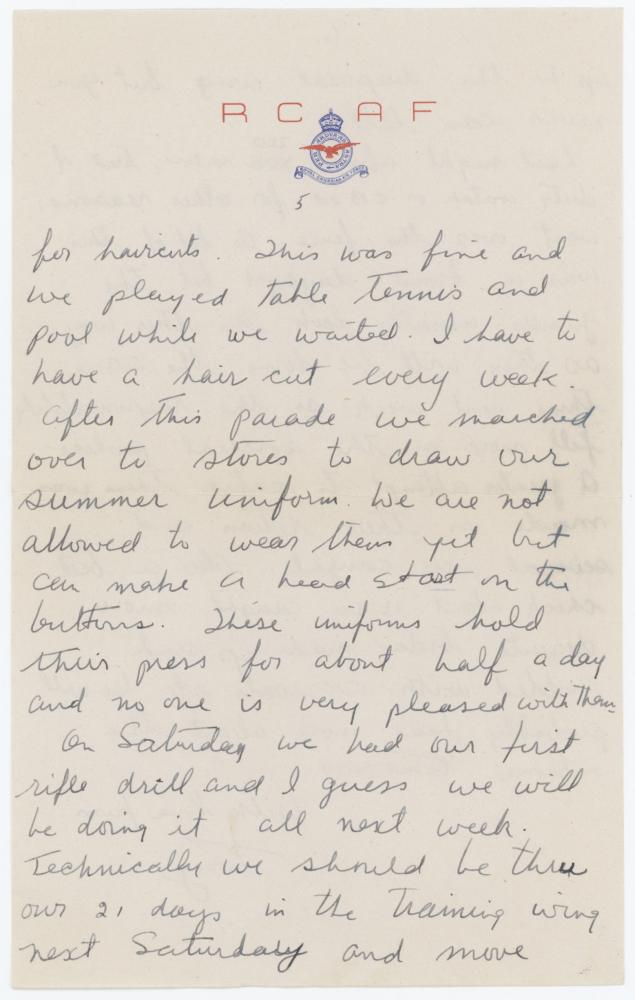 R C A F
PER ARDUA AD ASTRA
ROYAL CANADIAN AIR FORCE
5
for haircuts. This was fine and
we played table tennis and
pool while we waited. I have to
have a hair cut every week.
After this parade we marched
over to stores to draw our
summer uniform. We are not
allowed to wear them yet but
can make a head start on the
buttons. These uniforms hold
their press for about half a day
and no one is very pleased with them.
On Saturday we had our first
rifle drill and I guess we will
be doing it all next week.
Technically we should be thru
our 21 days in the training wing
next Saturday and move